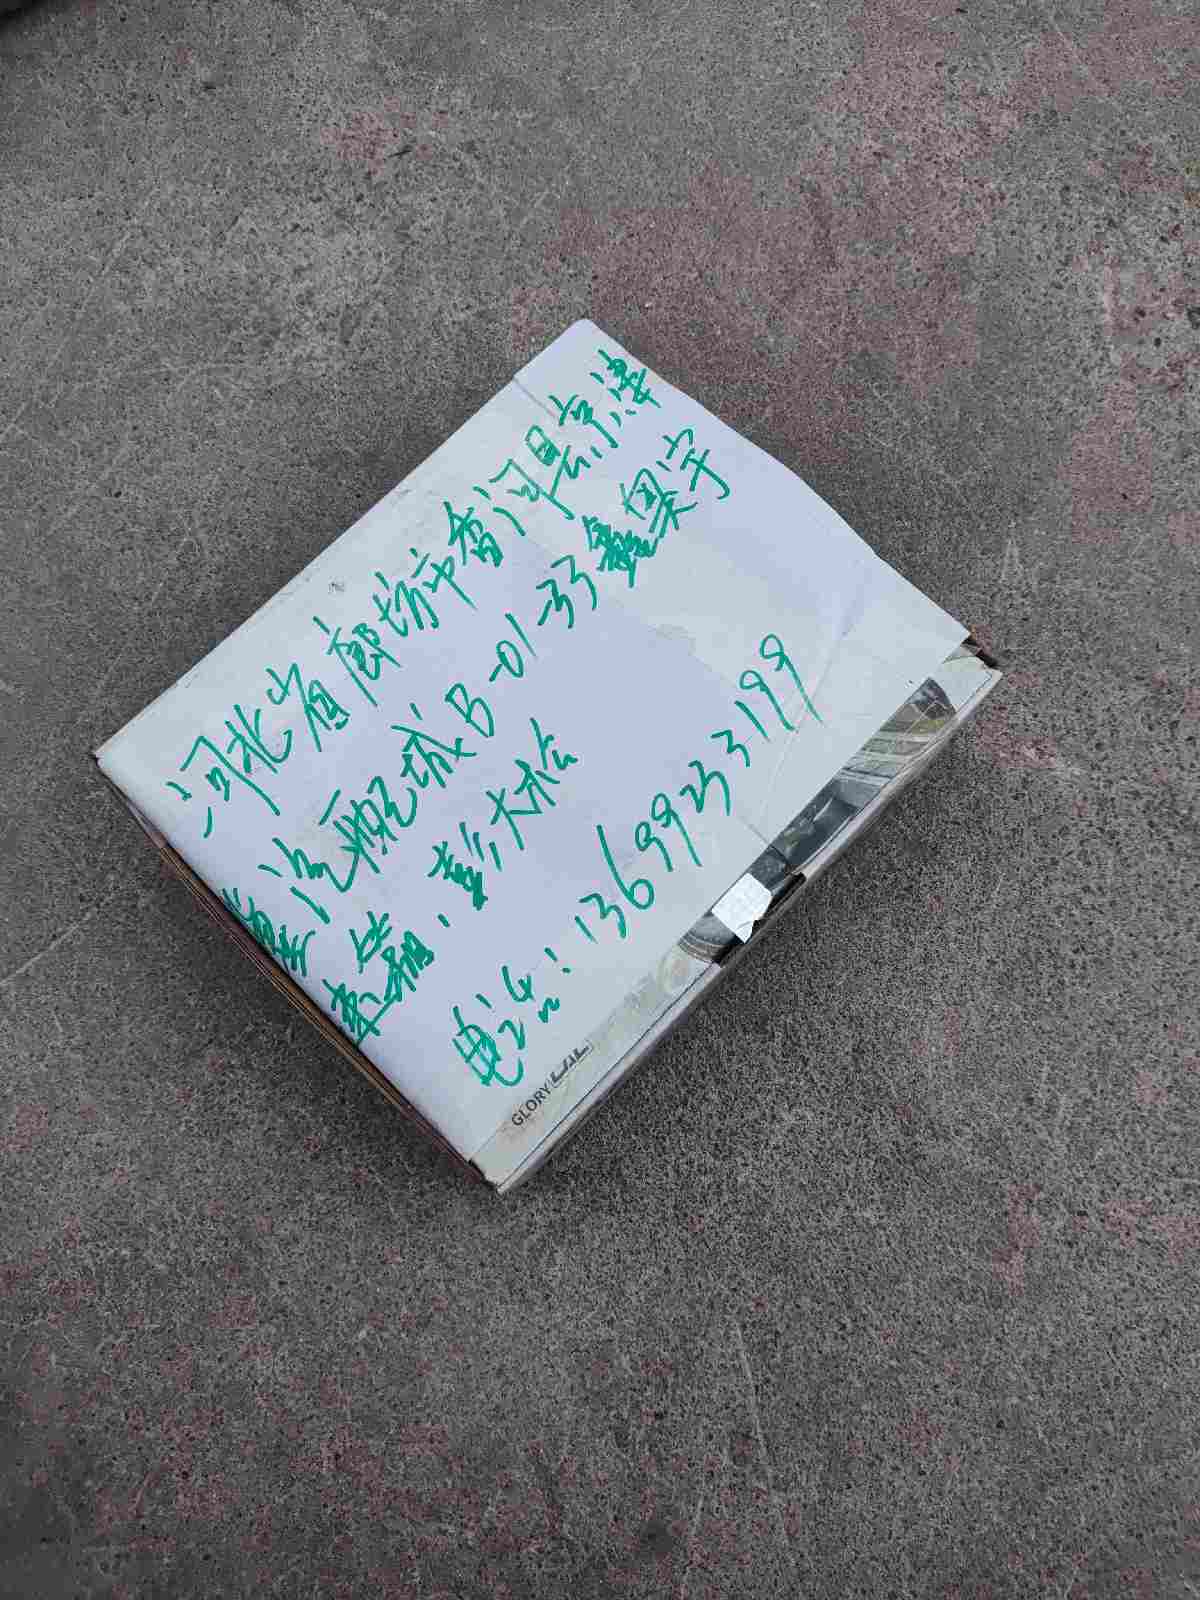 河北省廊坊市香河县京津
汽配城B-01-33鑫奥宇
车辆、彭大社会
电话:13699233199
GLORY